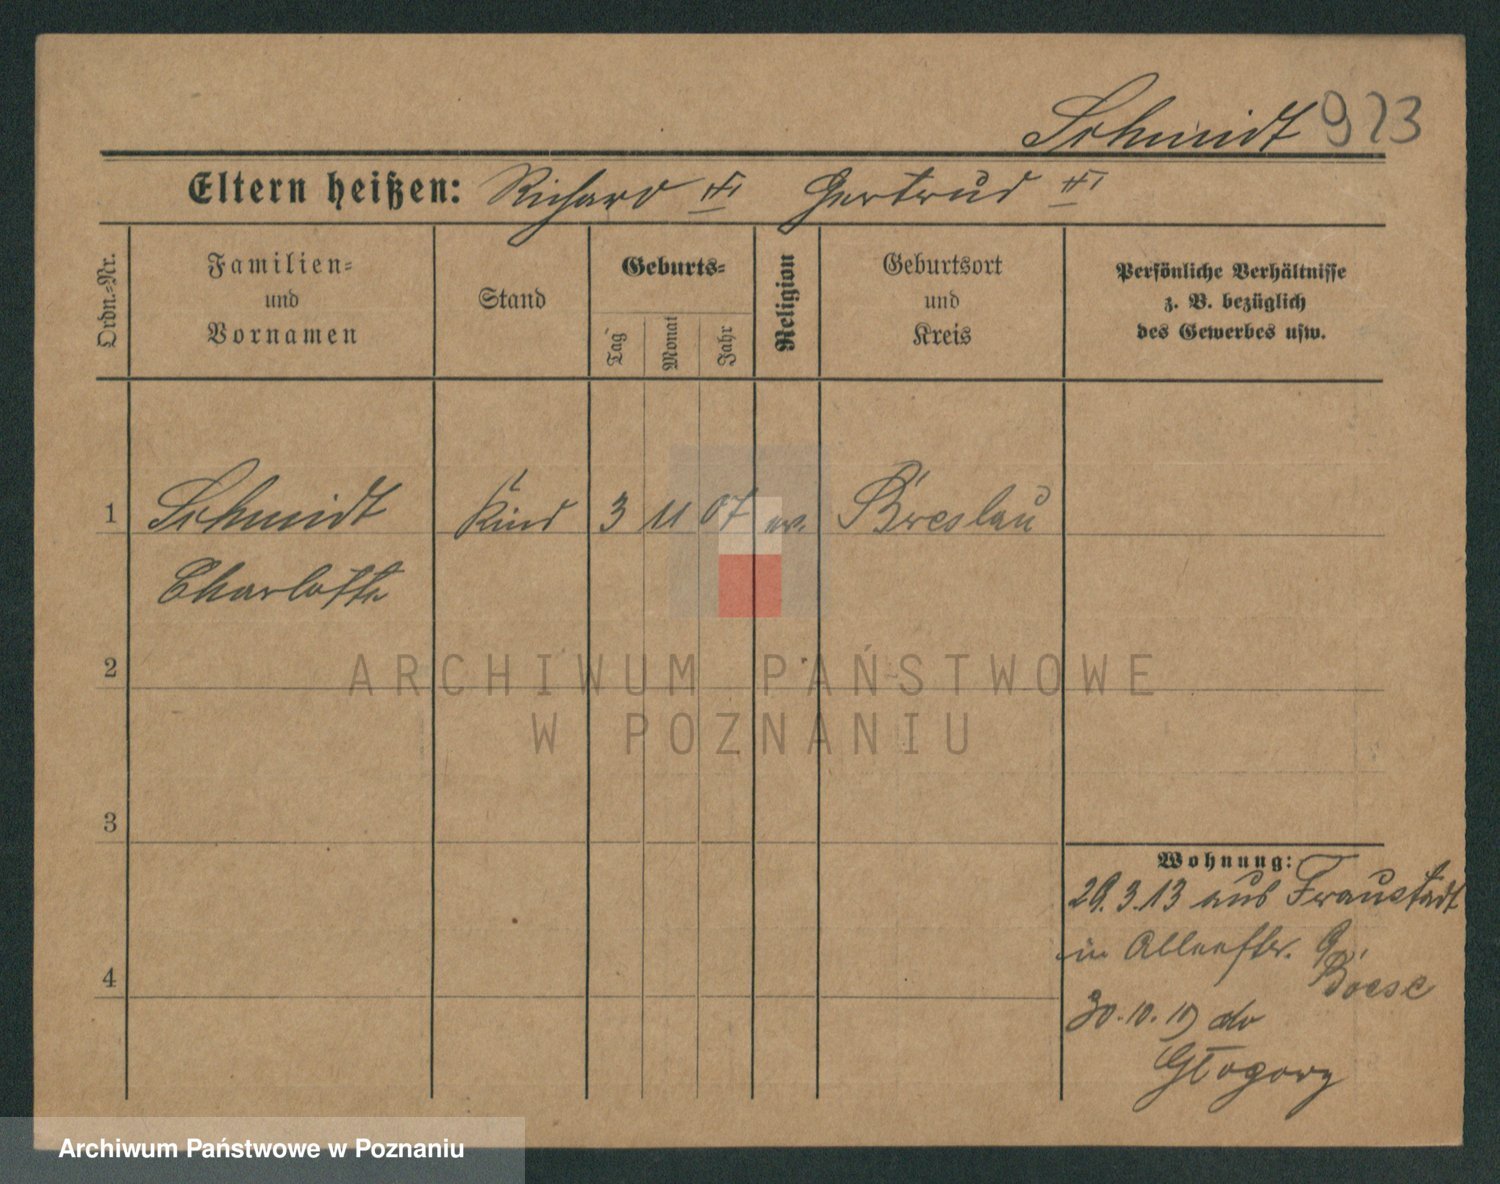 Schmidt 923
Eltern heißen: Richard Gertrud
Ordn.-Nr.
Familien-
und
Vornamen
Stand
Geburts-
Tag
Monat
Jahr
Religion
Geburtsort
und
Kreis
Persönliche Verhältnisse
z. B. bezüglich
des Gewerbes usw.
1 Schmidt Kind 3 11 07 ev. Breslau
Charlotte
2
ARCHIWUM PAŃSTWOWE
W POZNANIU
3
4
Wohnung:
29.3.13 aus Fraustadt
in
Boese
30.10.19 do
Głogowy
Archiwum Państwowe w Poznaniu